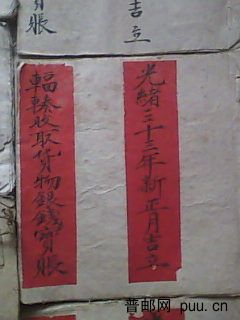 吉立
賬
光緒三十三年新正月吉立
輻輳收取貨物銀錢寶賬
普邮网 puu.cn